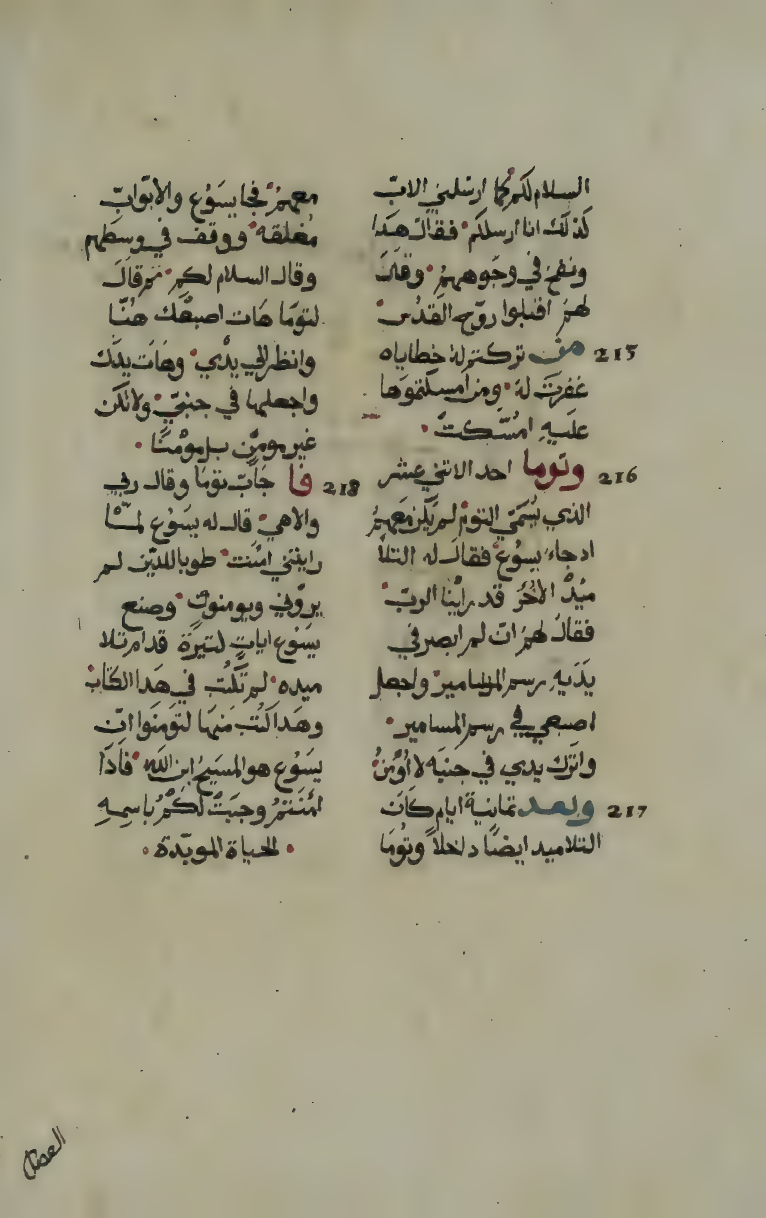 السلام لكم كما ارسلني الاب
كذلك انا ارسلكم فقال هدا
ونفخ في وجوههم وقال
لهم اقبلوا روح القدس
215 من تركتم له خطاياه
غفرت له ومن امسكتموها
عليه امسكت
216 وتوما احد الاتني عشر
الذي يسمي التوم لم يكن معهم
ادجاء يسوع فقال له التلا
ميد الاخر قد راينا الرب
فقال لهم ان لم ابصر في
يديه رسم المسامير واجعل
اصبعي في رسم المسامير
واترك يدي في جنبه لا اومن
217 وبعد تمانية ايام كان
التلاميد ايضا داخلا وتوما
معهم فجا يسوع والابواب
مغلقه ووقف في وسطهم
وقال السلام لكم تم قال
لتوما هات اصبعك هنا
وانظر الي يدي وهات يدك
واجعلها في جنبي ولا تكن
غير مومن بل مومنا
218 فا جاب توما وقال ربي
والاهي قال له يسوع لما
رايتني امنت طوبا للدين لم
يروني ويومنوا وصنع
يسوع ايات كتيرة قدام تلا
ميده لم تكتب في هدا الكتاب
وهدا كتب منها لتومنوا ان
يسوع هو المسيح ابن الله فادا
امنتم وجبت لكم باسمه
الحياة الموبدة